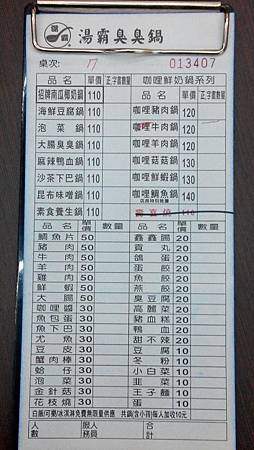 湯霸臭臭鍋
桌次: 17 013407
品名 單價 正字書數量 咖哩鮮奶鍋系列
招牌南瓜椰奶鍋 110 品名 單價 正字書數量
海鮮豆腐鍋 110 咖哩豬肉鍋 120
泡菜鍋 110 咖哩牛肉鍋 120
大腸臭臭鍋 110 咖哩羊肉鍋 120
麻辣鴨血鍋 110 咖哩菇菇鍋 130
沙茶下巴鍋 110 咖哩鮮蝦鍋 130
昆布味噌鍋 110 咖哩鯛魚鍋 140
素食養生鍋 110 壽喜燒 110
品名 單價 數量 品名 單價 數量
鯛魚片 50 鑫鑫腸 20
豬肉 50 貢丸 20
牛肉 50 鴿蛋 20
羊肉 50 魚餃 20
雞肉 50 蛋餃 20
鮮蝦 50 燕餃 20
大腸 50 臭豆腐 20
咖哩醬 30 高麗菜 20
魚包蛋 30 豬血糕 20
魚下巴 30 鴨血 20
尤魚 30 甜不辣 20
豆皮 30 豆腐 10
蟹肉棒 30 冬粉 10
蛤仔 30 小白菜 10
泡菜 30 韭菜 10
金針菇 30 王子麵 10
花枝燒 30 蛋 10
白飯/可樂/冰淇淋免費無限量供應 共鍋(含小孩)每人加收10元
人數 服務人員 合計